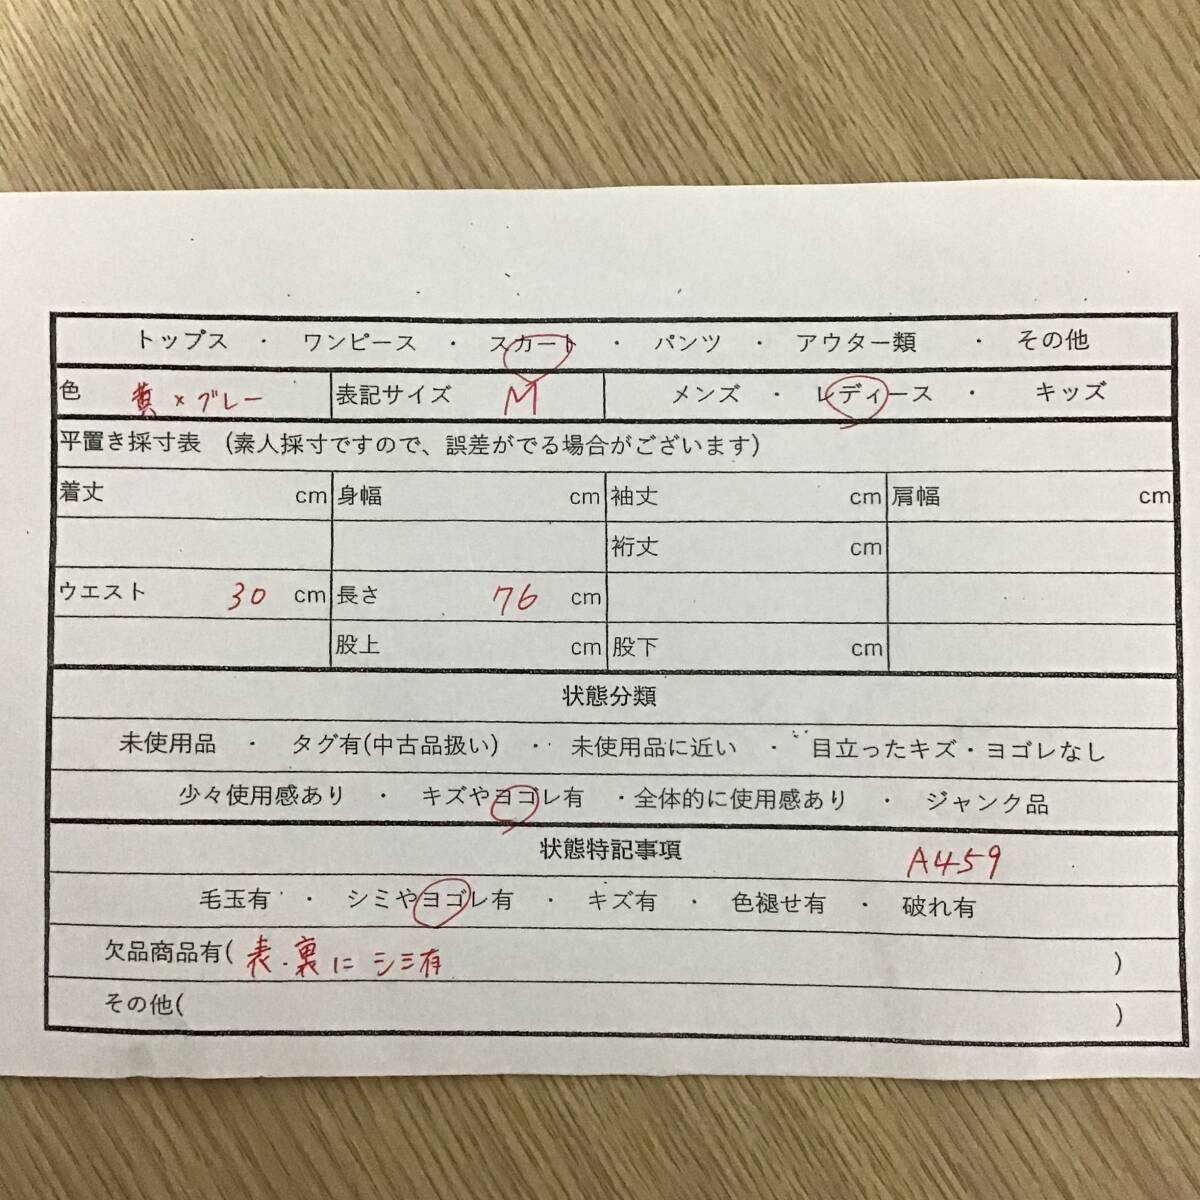 トップス ・ ワンピース ・ スカート ・ パンツ ・ アウター類 ・ その他
色 黄×グレー 表記サイズ M メンズ ・ レディース ・ キッズ
平置き採寸表 (素人採寸ですので、誤差がでる場合がございます)
着丈 cm 身幅 cm 袖丈 cm 肩幅 cm
裄丈 cm
ウエスト 30 cm 長さ 76 cm
股上 cm 股下 cm
状態分類
未使用品 ・ タグ有(中古品扱い) ・ 未使用品に近い ・ 目立ったキズ・ヨゴレなし
少々使用感あり ・ キズやヨゴレ有 ・全体的に使用感あり ・ ジャンク品
状態特記事項 A459
毛玉有 ・ シミやヨゴレ有 ・ キズ有 ・ 色褪せ有 ・ 破れ有
欠品商品有( 表・裏に シミ有 )
その他( )